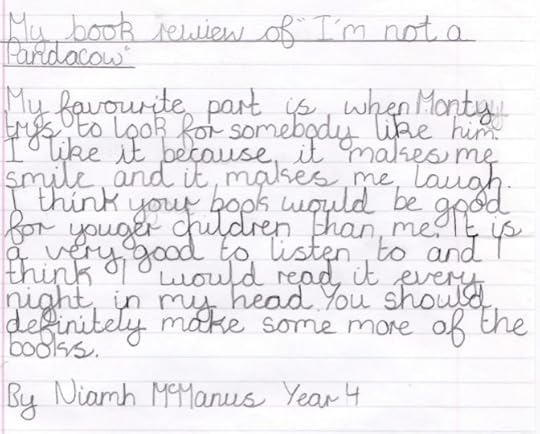 My book rewiew of "I'm not a
Pandacow"
My favourite part is when Monty
trys to look for somebody like him.
I like it because it makes me
smile and it makes me laugh.
I think your book would be good
for youger children than me. It is
a very good to listen to and I
think I would read it every
night in my head. You should
definitely make some more of the
books.
By Niamh McManus Year 4